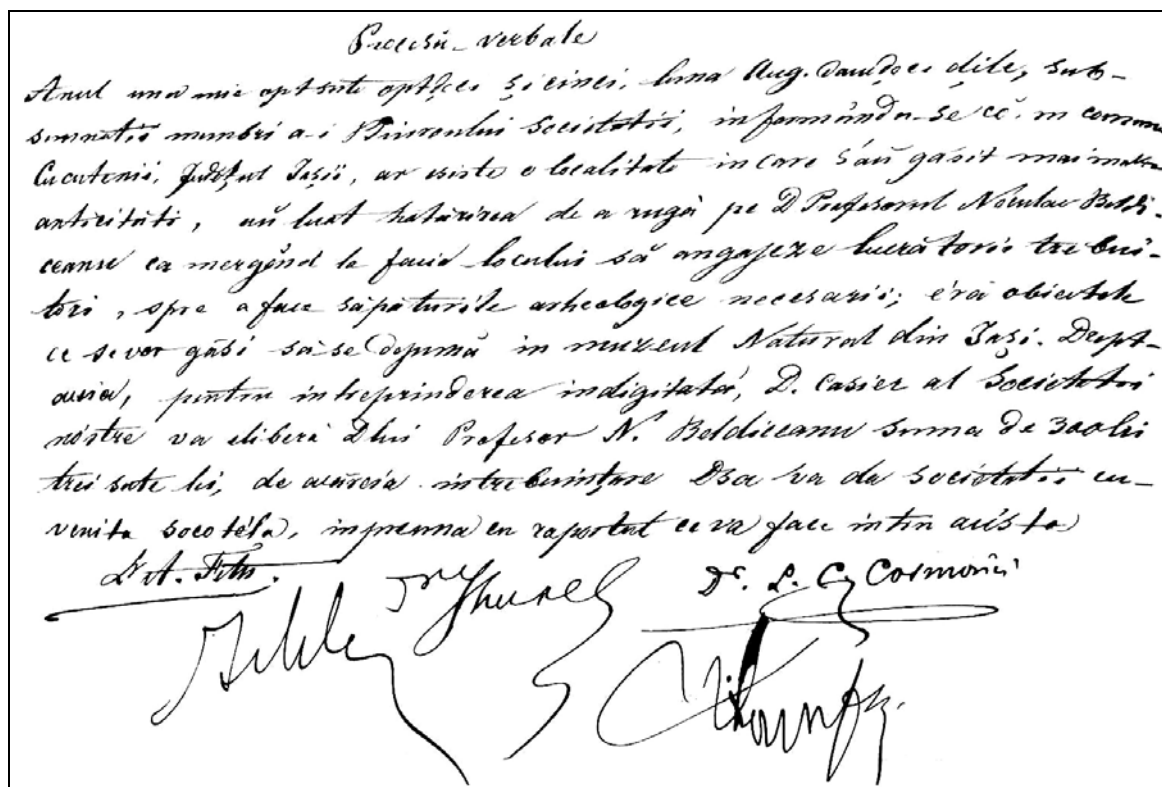 Procesŭ-verbale
Anul una mie optsute optzeci și cinci, luna Aug. dauĕdeci dile, sub-
semnații membri a-i Biuroului Societății, informându-se că, in comuna
Cucutenii, Județul Iașii, ar esista o localitate in care s'aŭ găsit mai multe
anticități, aŭ luat hotărirea de a rugà pe D Profesorul Neculae Beldi-
ceanu ca mergênd la facia locului să angajeze lucrătorii trebui-
tori, spre a face săpăturile arheologice necesarii; éră obiectele
ce se vor găsi să se depumă in muzeul Natural din Iași. Drept-
aceia, pentru intreprinderea indigitată, D. casier al Societății
nóstre va eliberà Dlui Profesor N. Beldiceanu suma de 300 lei
trei sute lei, de a căreia intrebuințare Dsa va da societății cu-
venita socotélă, inpreuna cu raportul ce va face intru acésta
Dr A. Fétu. Dr. L. C. Cosmovici